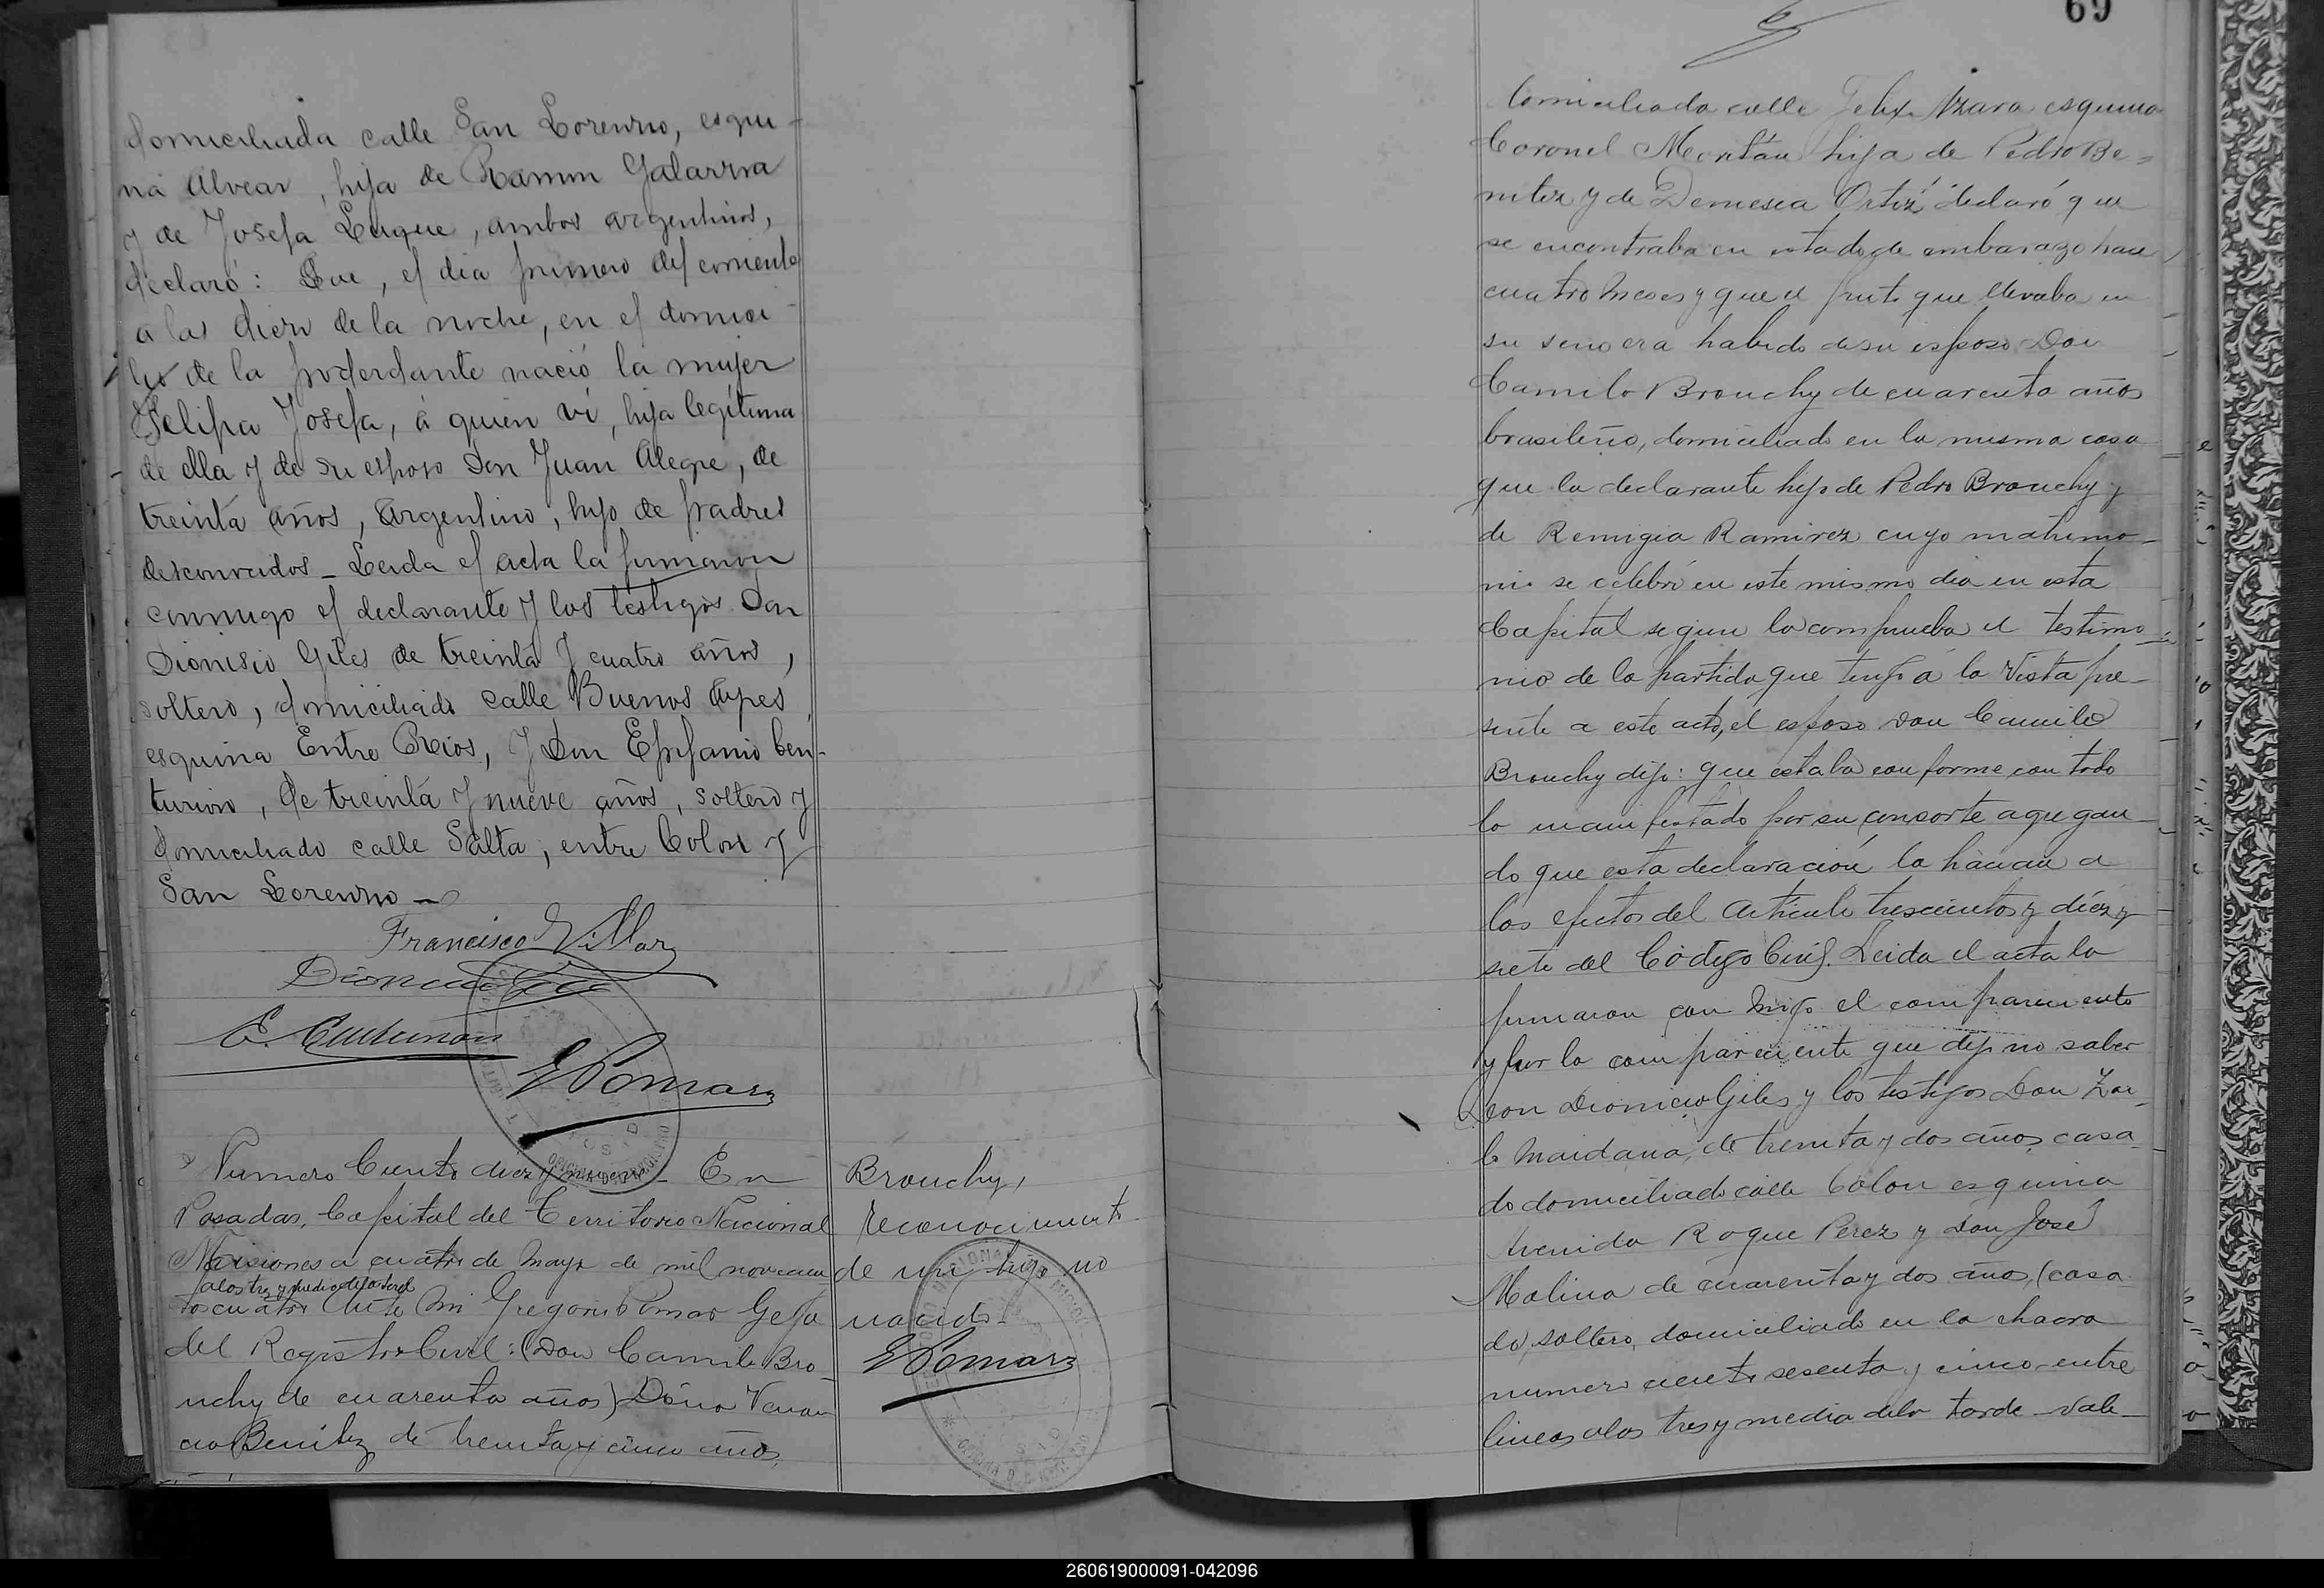 domiciliada calle San Lorenzo, esqui-
na Alvear, hija de Ramon Galarza
y de Josefa Luque, ambos argentinos,
declaró: Que, el dia primero del corriente
a las diez de la noche, en el domici-
lio de la poderdante nació la mujer
Felipa Josefa, á quien ví, hija legítima
de ella y de su esposo Don Juan Alegre, de
treinta años, argentino, hijo de padres
desconocidos _ Leida el acta la firmaron
conmigo el declarante y los testigos Don
Dionisio Giles de treinta y cuatro años,
soltero, domiciliado calle Buenos Ayres
esquina Entre Rios, y Don Epifanio Cen-
turion, de treinta y nueve años, soltero y
domiciliado calle Salta, entre Colon y
San Lorenzo _
Francisco Villar
Dionicio Giles
E. Centurión
G Pomar
Numero Ciento diez y nueve _ En
Posadas, Capital del Territorio Nacional
Misiones a cuatro de Mayo de mil novecien
a las tres y media de la tarde
tos cuatro Ante Mi Gregorio Pomar Gefe
del Registro Civil: (Don Camilo Bro-
uchy de cuarenta años) Doña Venan
cia Benitez de treinta y cinco años,
Brouchy,
reconocimiento
de un hijo no
nacido _
G Pomar
69
domiciliada calle Felix Azara esquina
Coronel Morían hija de Pedro Be=
nitez y de Demesia Ortíz declaró que
se encontraba en estado de embarazo hace
cuatro meses y que el fruto que llevaba en
su seno era habido de su esposo Don
Camilo Brouchy de cuarenta años
brasileño, domiciliado en la misma casa
que la declarante hijo de Pedro Brouchy y
de Remigia Ramirez cuyo matrimo-
nio se celebró en este mismo dia en esta
Capital segun lo comprueba el testimo-
nio de la partida que tengo á la vista pre-
sente a este acto, el esposo Don Camilo
Brouchy dijo: que estaba conforme con todo
lo manifestado por su consorte agregan
do que esta declaración la hacian a
los efectos del Articulo trescientos y diez y
siete del Código Civil. Leida el acta la
firmaron con migo el compareciente
y por la compareciente que dijo no saber
Don Dionicio Giles y los testigos Don Zoi-
lo Maidana, de treinta y dos años, casa
do domiciliado calle Colon esquina
Avenida Roque Perez y Don José
Molina de cuarenta y dos años, (casa
do) soltero, domiciliado en la chacra
numero ciento sesenta y cinco _ entre
lineas a las tres y media de la tarde _ vale _
260619000091-042096